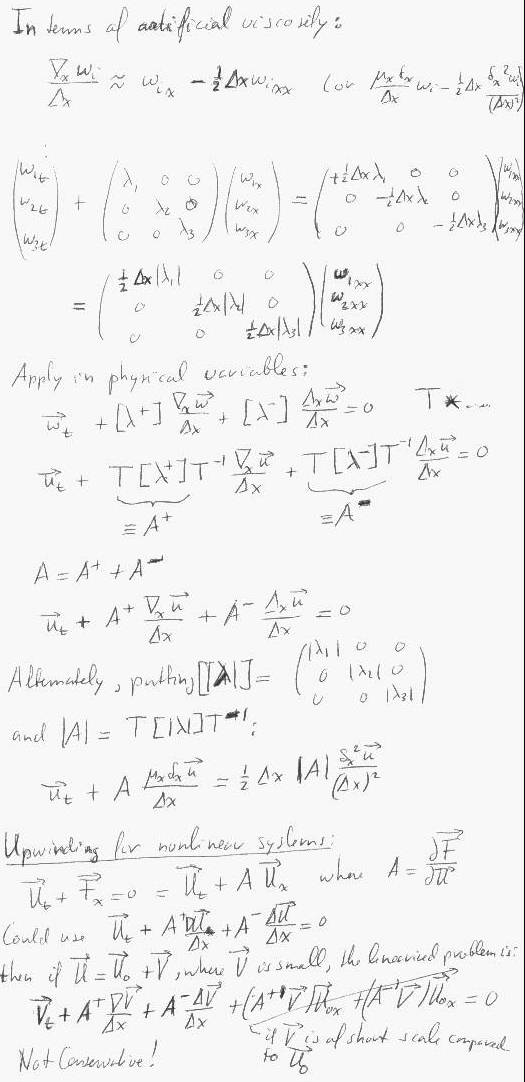 In terms of artificial viscosity:
∇ₓwᵢ/Δx ≈ wᵢₓ − ½Δx wᵢₓₓ (or μₓδₓ/Δx wᵢ − ½Δx δₓ²wᵢ/(Δx)²)
(w₁ₜ w₂ₜ w₃ₜ) + (λ₁ 0 0 / 0 λ₂ 0 / 0 0 λ₃)(w₁ₓ w₂ₓ w₃ₓ) = (+½Δxλ₁ 0 0 / 0 −½Δxλ₂ 0 / 0 0 −½Δxλ₃)(w₁ₓₓ w₂ₓₓ w₃ₓₓ)
= (½Δx|λ₁| 0 0 / 0 ½Δx|λ₂| 0 / 0 0 ½Δx|λ₃|)(w₁ₓₓ w₂ₓₓ w₃ₓₓ)
Apply in physical variables:
w⃗ₜ + [λ⁺] ∇ₓw⃗/Δx + [λ⁻] Δₓw⃗/Δx = 0 T*....
u⃗ₜ + T[λ⁺]T⁻¹ ∇ₓu⃗/Δx + T[λ⁻]T⁻¹ Δₓu⃗/Δx = 0
≡A⁺ ≡A⁻
A = A⁺ + A⁻
u⃗ₜ + A⁺ ∇ₓu⃗/Δx + A⁻ Δₓu⃗/Δx = 0
Alternately, putting [|λ|] = (|λ₁| 0 0 / 0 |λ₂| 0 / 0 0 |λ₃|)
and |A| = T[|λ|]T⁻¹:
u⃗ₜ + A μₓδₓu⃗/Δx = ½ Δx |A| δₓ²u⃗/(Δx)²
Upwinding for nonlinear systems:
U⃗ₜ + F⃗ₓ = 0 = U⃗ₜ + A U⃗ₓ where A = ∂F⃗/∂U⃗
Could use U⃗ₜ + A⁺ ∇U⃗/Δx + A⁻ ΔU⃗/Δx = 0
then if U⃗ = U⃗₀ + V⃗, where V⃗ is small, the linearized problem is:
V⃗ₜ + A⁺ ∇V⃗/Δx + A⁻ ΔV⃗/Δx + (A⁺' V⃗)U⃗₀ₓ + (A⁻' V⃗)U⃗₀ₓ = 0
if V⃗ is of short scale compared
to U⃗₀
Not Conservative!